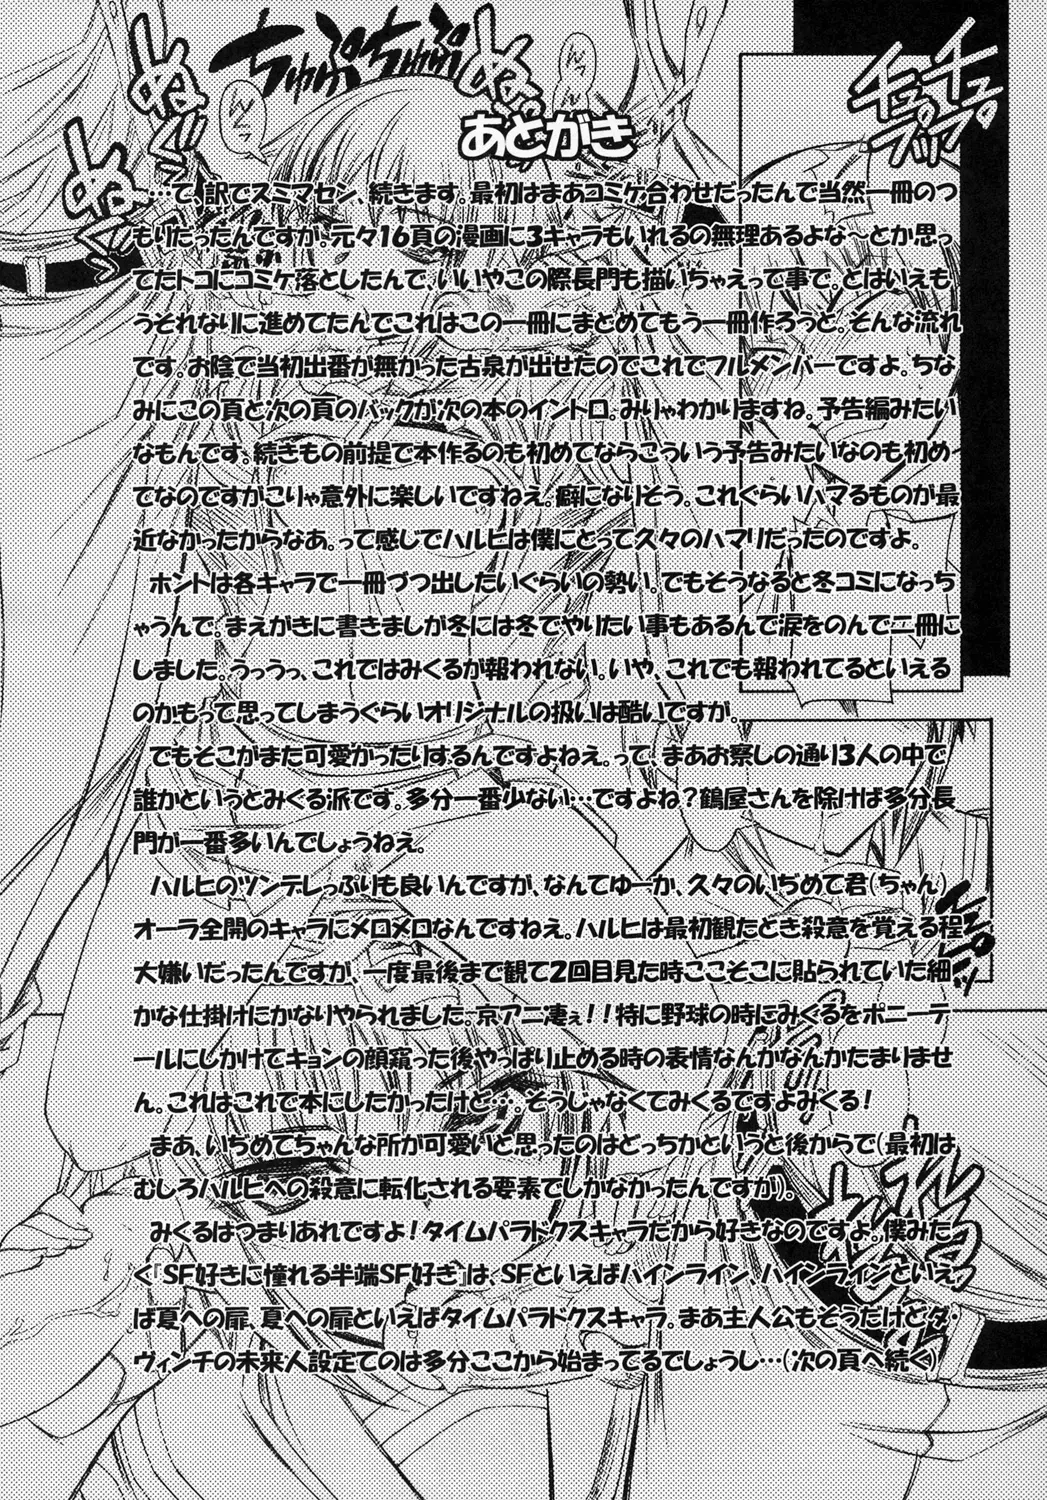 ちゅぷちゅぷ
ぬぐ
ぬぐ
ぬっ
チュプ
チュプ
あとがき
…て、訳でスミマセン、続きます。最初はまあコミケ合わせだったんで当然一冊のつ
もりだったんですが。元々16頁の漫画に3キャラもいれるの無理あるよな～とか思っ
てたトコにコミケ落としたんで、いいやこの際長門も描いちゃえって事で。とはいえも
うそれなりに進めてたんでこれはこの一冊にまとめてもう一冊作ろうと。そんな流れ
です。お陰で当初出番が無かった古泉が出せたのでこれでフルメンバーですよ。ちな
みにこの頁と次の頁のバックが次の本のイントロ。みりゃわかりますね。予告編みたい
なもんです。続きもの前提で本作るのも初めてならこういう予告みたいなのも初め
てなのですがこりゃ意外に楽しいですねえ。癖になりそう。これぐらいハマるものが最
近なかったからなあ。って感じでハルヒは僕にとって久々のハマリだったのですよ。
ホントは各キャラで一冊づつ出したいぐらいの勢い。でもそうなると冬コミになっち
ゃうんで。まえがきに書きましが冬には冬でやりたい事もあるんで涙をのんで二冊に
しました。うっうっ、これではみくるが報われない。いや、これでも報われてるといえる
のかもって思ってしまうぐらいオリジナルの扱いは酷いですが。
でもそこがまた可愛かったりするんですよねえ。って、まあお察しの通り3人の中で
誰かというとみくる派です。多分一番少ない…ですよね？鶴屋さんを除けば多分長
門が一番多いんでしょうねえ。
ハルヒのツンデレっぷりも良いんですが、なんてゆーか、久々のいぢめて君（ちゃん）
オーラ全開のキャラにメロメロなんですねえ。ハルヒは最初観たとき殺意を覚える程
大嫌いだったんですが、一度最後まで観て2回目見た時ここそこに貼られていた細
かな仕掛けにかなりやられました。京アニ凄ぇ！！特に野球の時にみくるをポニーテ
ールにしかけてキョンの顔窺った後やっぱり止める時の表情なんかなんかたまりませ
ん。これはこれで本にしたかったけど…。そうじゃなくてみくるですよみくる！
まあ、いぢめてちゃんな所が可愛いと思ったのはどっちかというと後からで（最初は
むしろハルヒへの殺意に転化される要素でしかなかったんですが）。
みくるはつまりあれですよ！タイムパラドクスキャラだから好きなのですよ。僕みた
く『SF好きに憧れる半端SF好き』は、SFといえばハインライン、ハインラインといえ
ば夏への扉、夏への扉といえばタイムパラドクスキャラ。まあ主人公もそうだけどダ・
ヴィンチの未来人設定てのは多分ここから始まってるでしょうし…（次の頁へ続く）